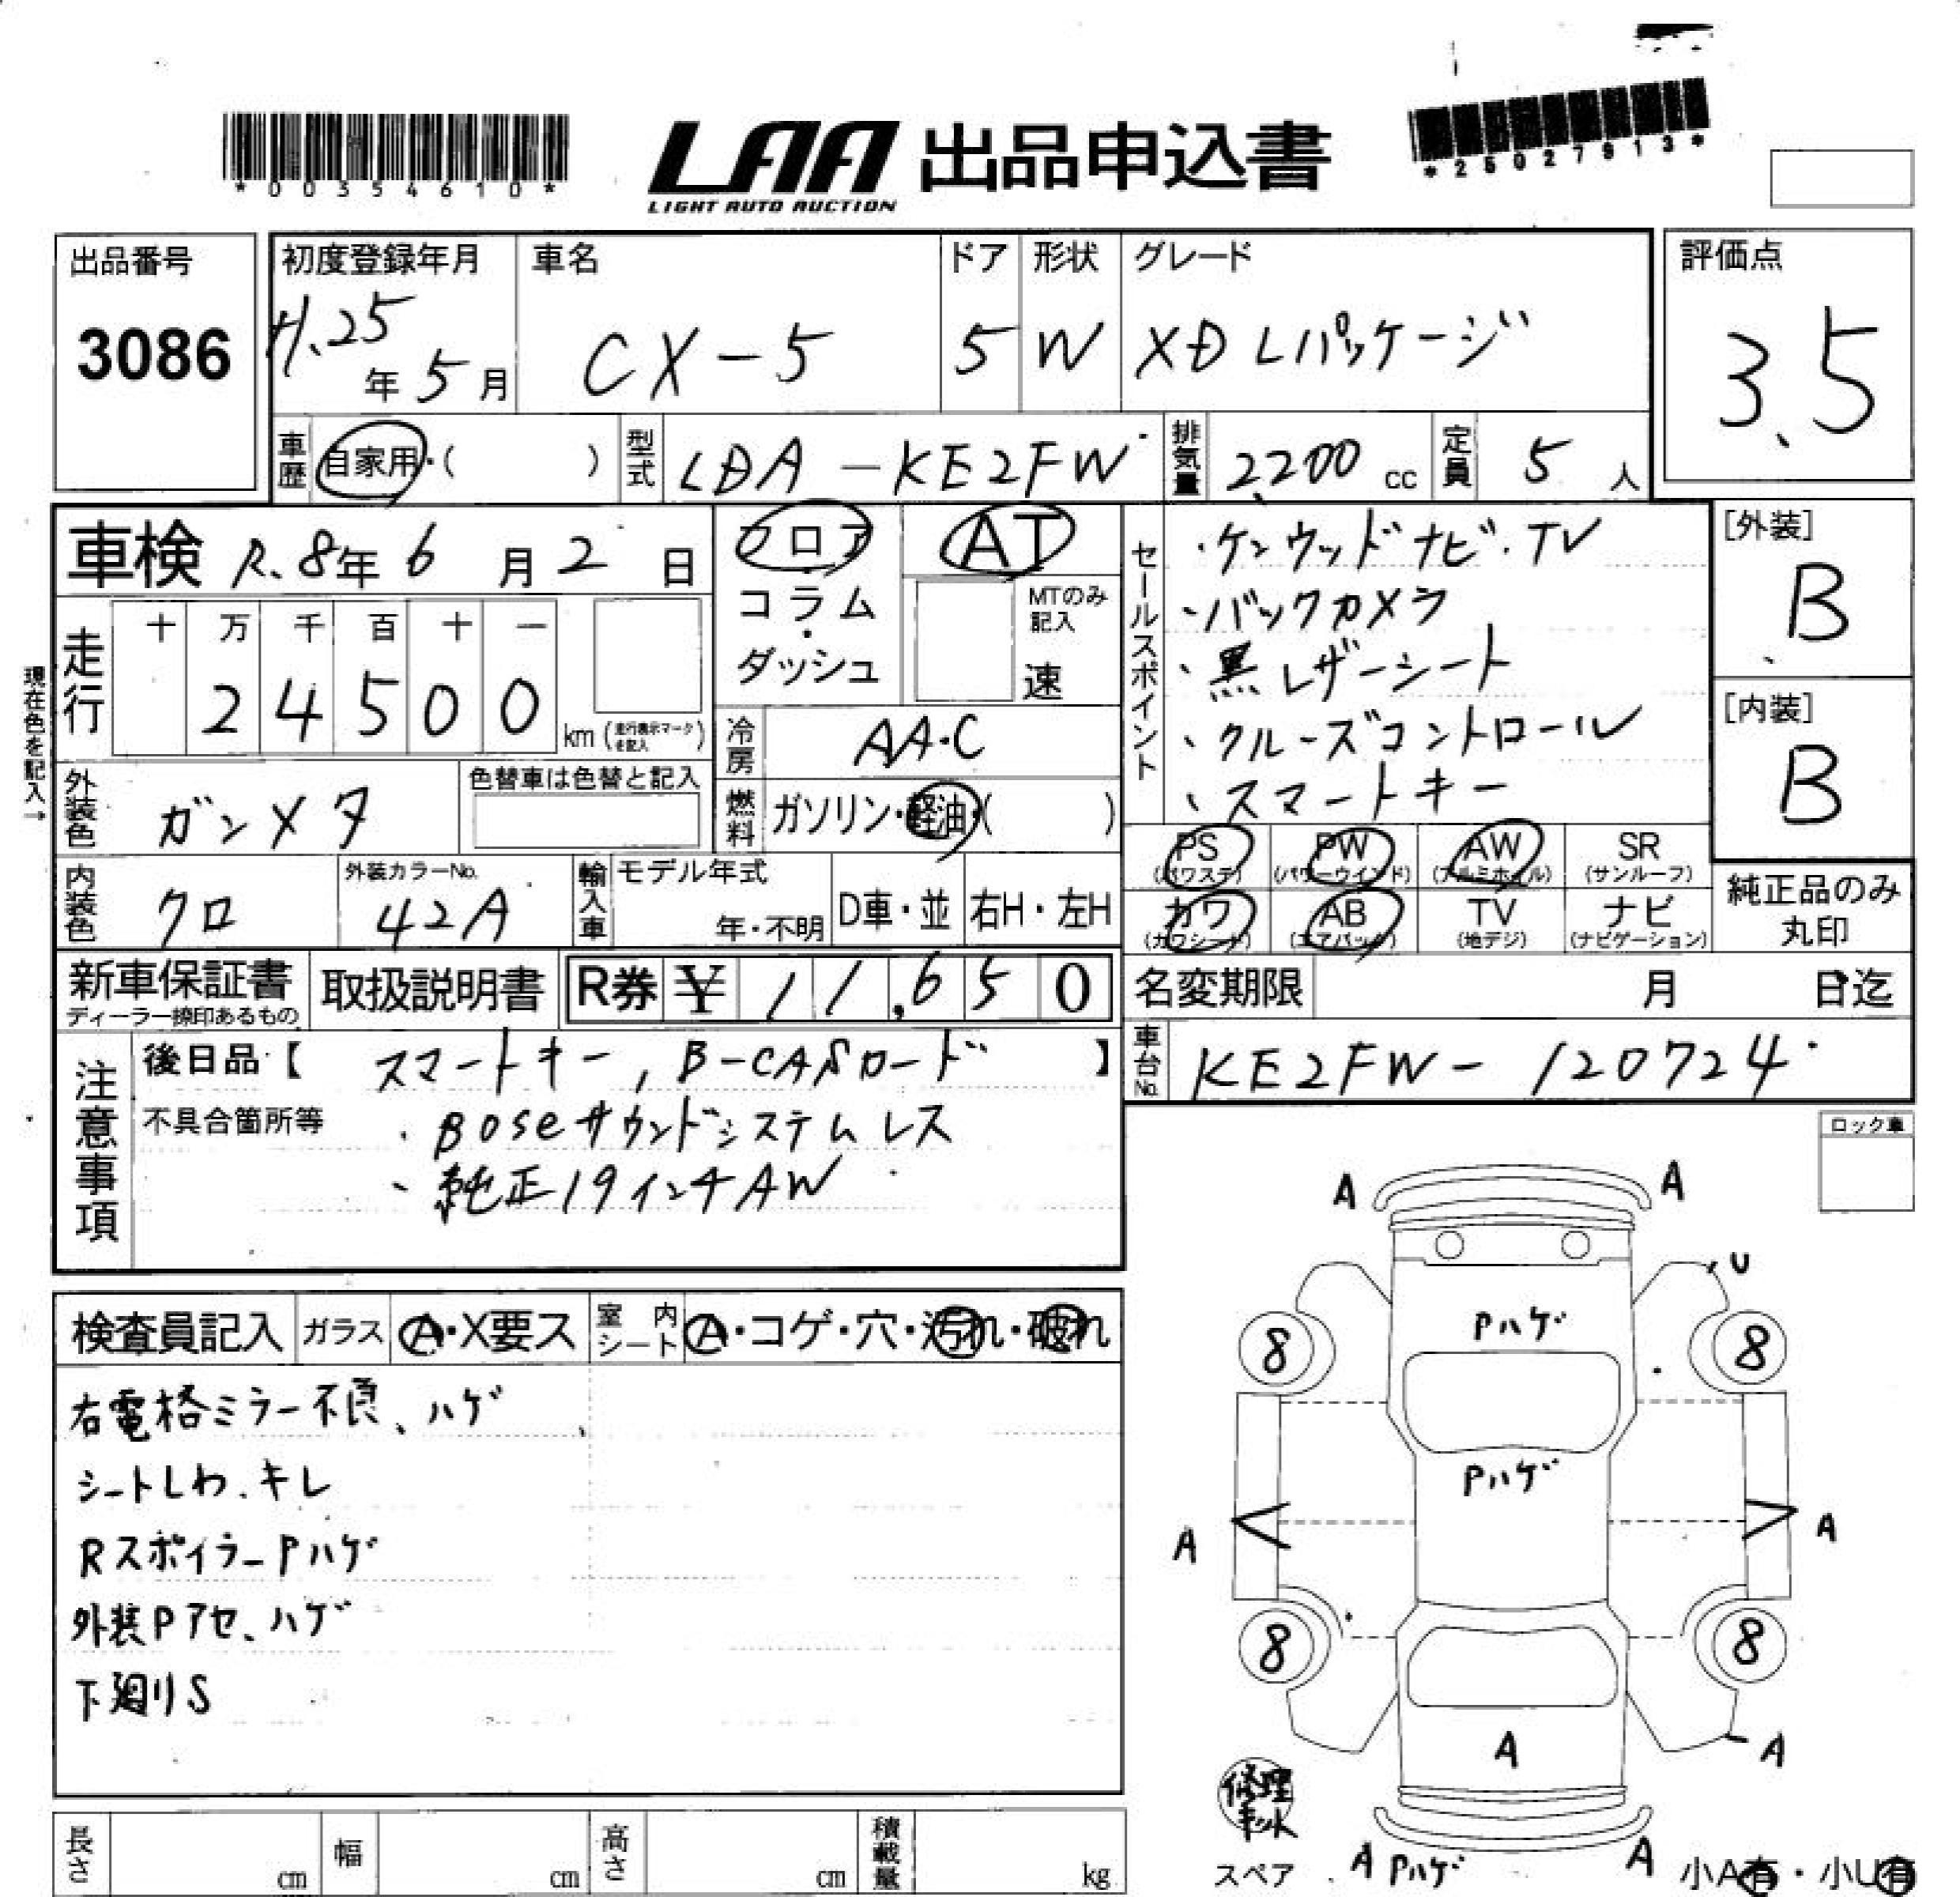 *00354610*
LAA 出品申込書
LIGHT AUTO AUCTION
*25027913*
出品番号
3086
初度登録年月
H.25年5月
車名
CX-5
ドア
5
形状
W
グレード
XD Lパッケージ
評価点
3.5
車歴 自家用・( )
型式 LDA-KE2FW
排気量 2,200 cc
定員 5 人
車検 R.8年6月2日
フロア
コラム
・
ダッシュ
AT
MTのみ
記入
速
セールスポイント
・ケンウッドナビ・TV
・バックカメラ
・黒レザーシート
・クルーズコントロール
・スマートキー
[外装]
B
[内装]
B
現在色を記入→
走行
十 万 千 百 十 一
2 4 5 0 0 km (走行表示マークを記入)
冷房 AA・C
外装色 ガンメタ
色替車は色替と記入
燃料 ガソリン・軽油・( )
PS (パワステ)
PW (パワーウインド)
AW (アルミホイル)
SR (サンルーフ)
カワ (カワシート)
AB (エアバック)
TV (地デジ)
ナビ (ナビゲーション)
純正品のみ
丸印
内装色 クロ
外装カラーNo.
42A
輸入車
モデル年式
年・不明
D車・並
右H・左H
新車保証書
ディーラー捺印あるもの
取扱説明書
R券 ¥ 11,650
名変期限 月 日迄
車台No. KE2FW-120724
注意事項
後日品【 スマートキー, B-CASカード 】
不具合箇所等
・BOSEサウンドシステムレス
・純正19インチAW
ロック車
検査員記入
ガラス A・X要ス
室内シート A・コゲ・穴・汚れ・破れ
右電格ミラー不良、ハゲ
シートしわ、キレ
RスポイラーPハゲ
外装Pアセ、ハゲ
下廻りS
A A
U
Pハゲ
8 8
Pハゲ
A A
8 8
A A
修理
キット
スペア
A Pハゲ A
小A有・小U有
長さ cm
幅 cm
高さ cm
積載量 kg